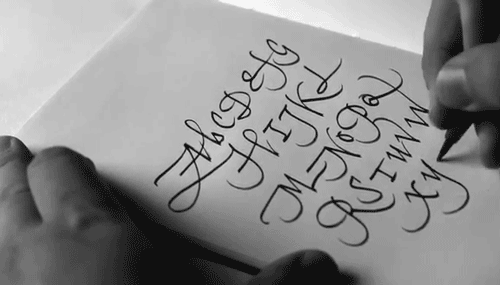 AbCDEFG
HIJKL
MNOPQ
RSTUVW
XY